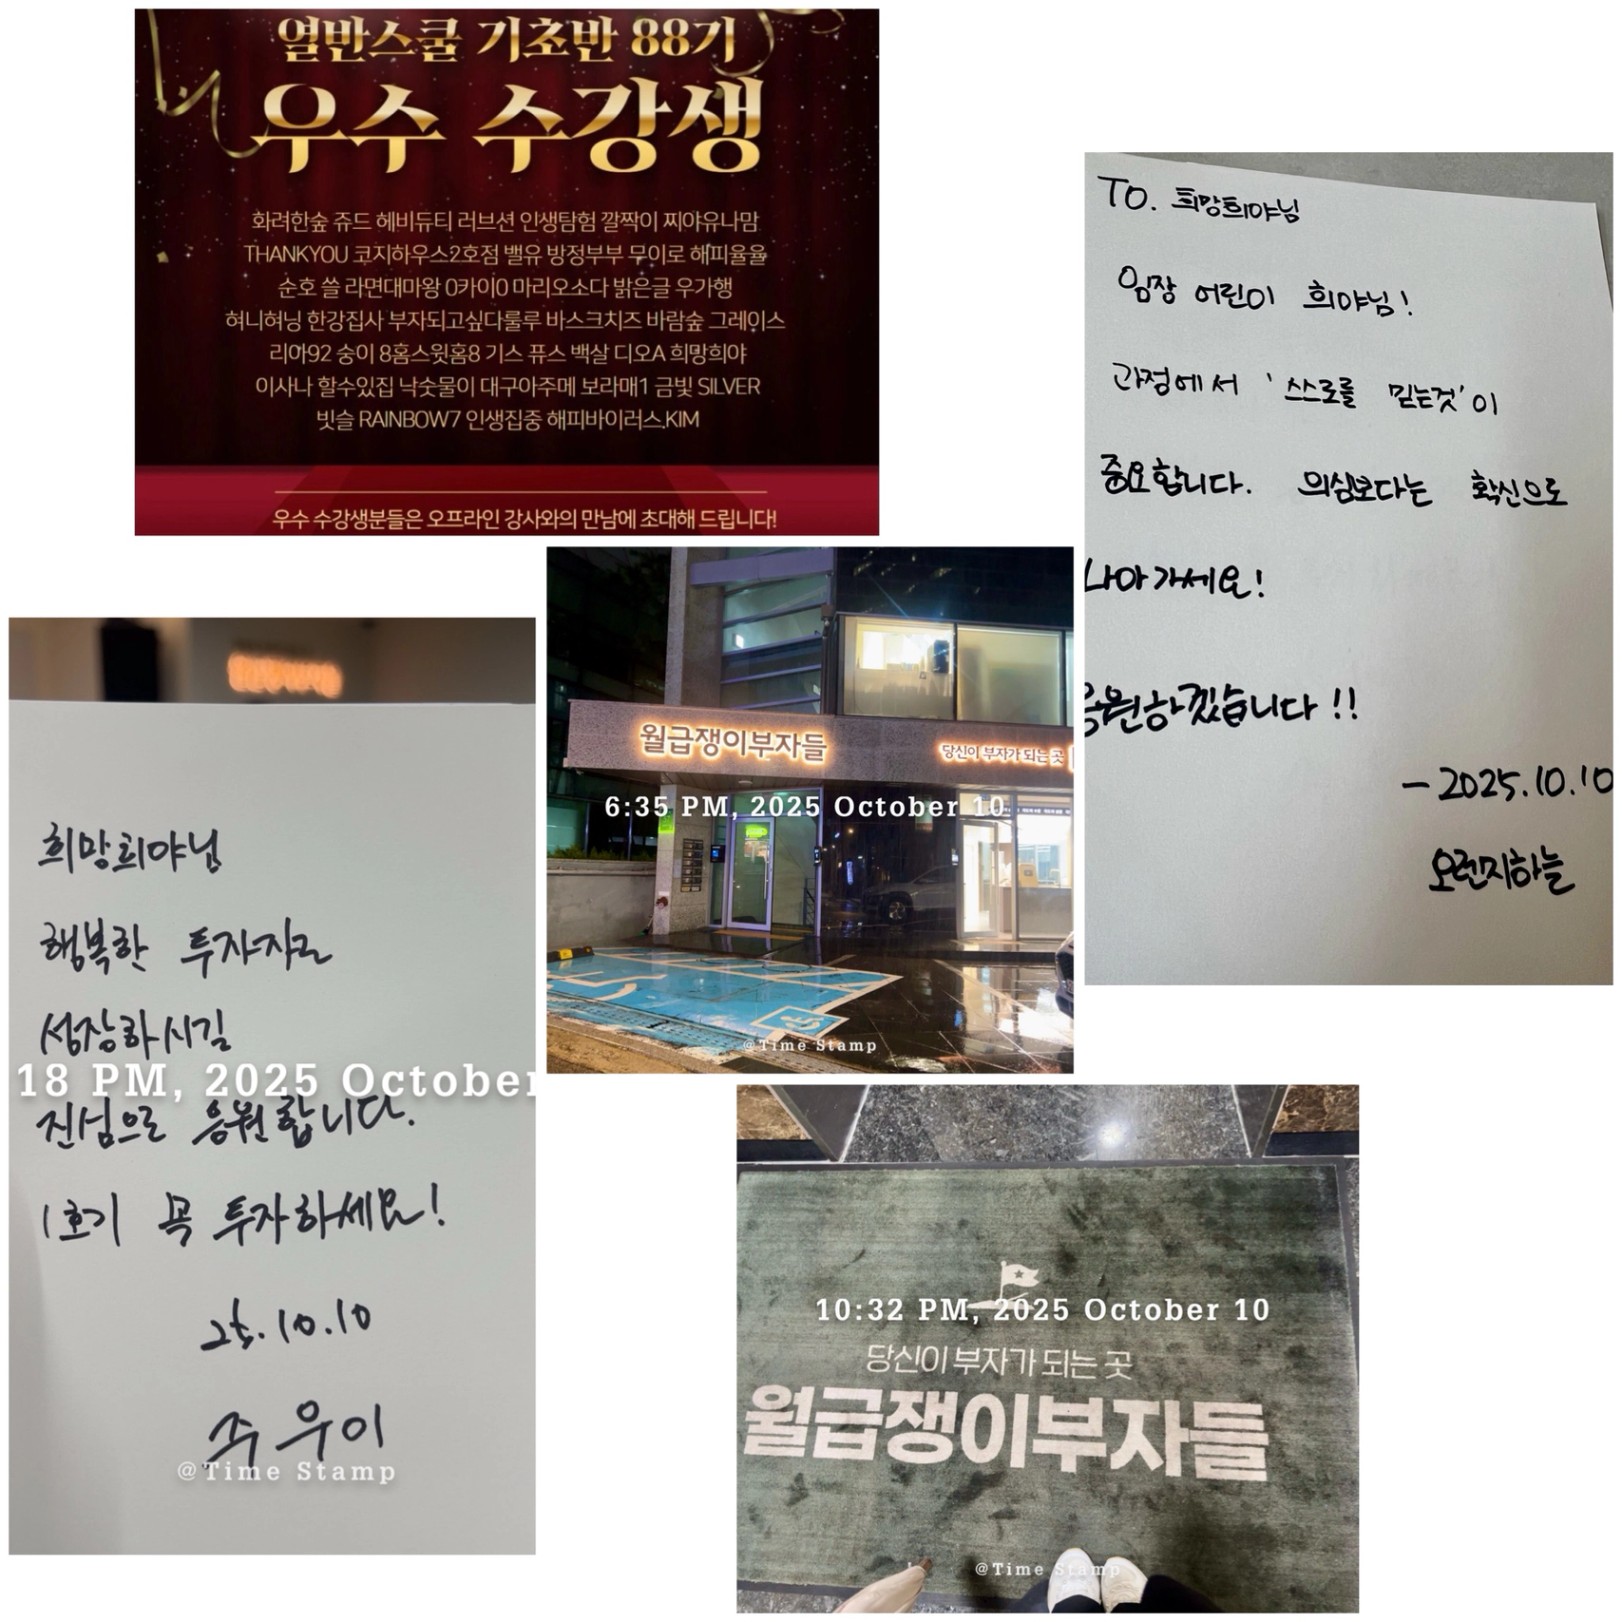 열반스쿨 기초반 88기
우수 수강생
화려한숲 쥬드 헤비듀티 러브션 인생탐험 깔짝이 찌야유나맘
THANKYOU 코지하우스2호점 밸유 방정부부 무이로 해피율율
순호 쓸 라면대마왕 0카이0 마리오소다 밝은글 우가행
혀니혀닝 한강집사 부자되고싶다룰루 바스크치즈 바람숲 그레이스
리아92 숭이 8홈스윗홈8 기스 퓨스 백살 디오A 희망희야
이사나 할수있집 낙숫물이 대구아주메 보라매1 금빛 SILVER
빗슬 RAINBOW7 인생집중 해피바이러스.KIM
우수 수강생분들은 오프라인 강사와의 만남에 초대해 드립니다!
TO. 희망희야님
임장 어린이 희야님!
과정에서 '스스로를 믿는것'이
중요합니다. 의심보다는 확신으로
나아가세요!
응원하겠습니다!!
- 2025.10.10
오렌지하늘
월급쟁이부자들
당신이 부자가 되는 곳
6:35 PM, 2025 October 10
@Time Stamp
희망희야님
행복한 투자자로
성장하시길
18 PM, 2025 October
진심으로 응원합니다.
1호기 꼭 투자하세요!
25.10.10
주우이
@Time Stamp
10:32 PM, 2025 October 10
당신이 부자가 되는 곳
월급쟁이부자들
@Time Stamp